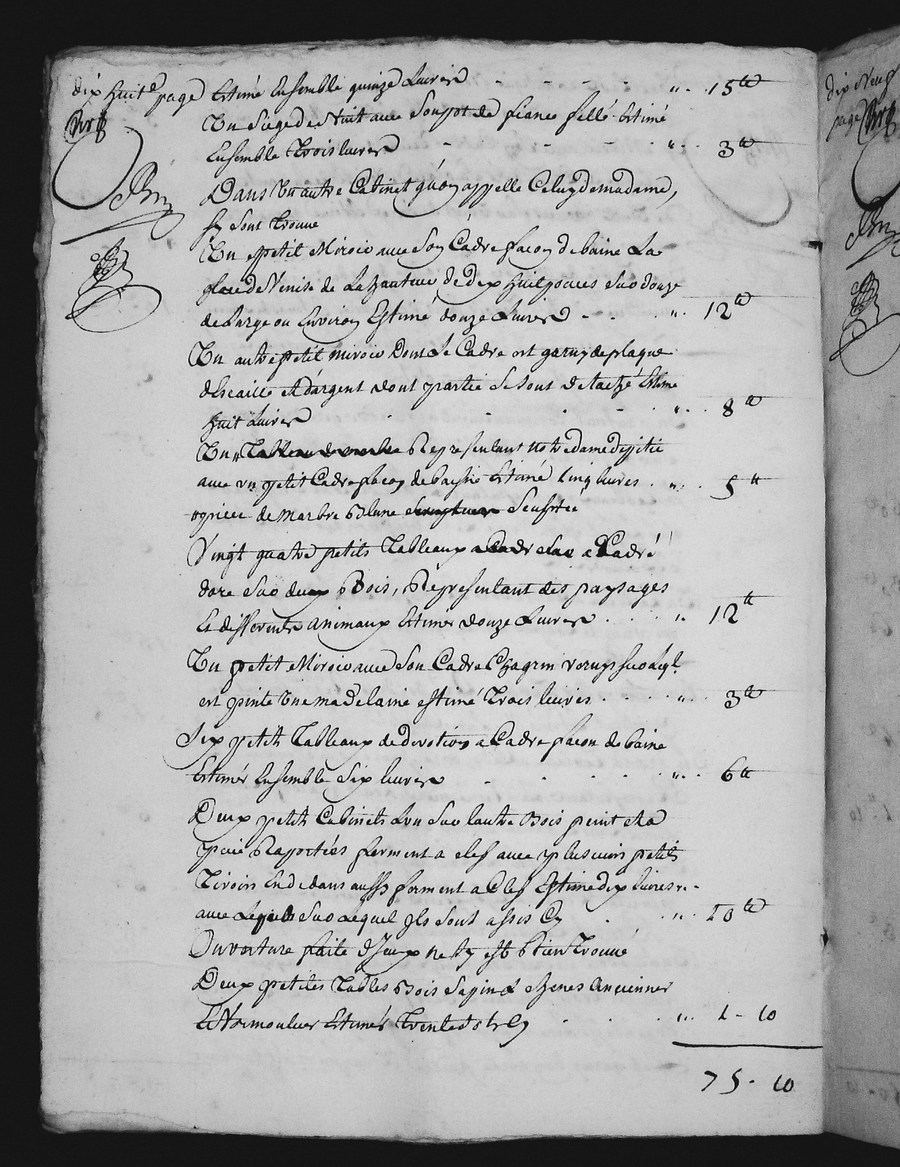 dix huit.e page Estimé Ensemble quinze Livres - - - - " .. 15 tt
Un Siege de Nuit avec Son pot de fiance fellé Estimé
Ensemble Trois livres - - - " .. 3 tt
Dans Un autre Cabinet qu'on appelle Celuy de madame,
sy sont Trouvé
Un petit Miroir avec Son Cadre facon debaine La
glace de Venise de La hauteur de dix huit pouces Sur douze
de Large ou Environ Estimé douze Livres - - " .. 12 tt
Un autre petit miroir Dont Le Cadre est garny de plaque
dEscaille et D'argent dont partie Se sont detaché Estimé
huit Livres - - - - " .. 8 tt
Un Tableau Representant notre dame depitié
avec un petit Cadre facon Estimé Cinq livres . " . 5 tt
de Marbre Blanc
Vingt quatre petits Tableaux a Cadré
doré Sur du Bois, Representant des paysages
Et differents animaux Estimés douze Livres . . . " . 12 tt
Un petit Miroir avec Son Cadre Chagrin Sur
est peinte Une madelaine estimé Trois livres . . . " . 3 tt
Six petits Tableaux de devotion a Cadre facon de baine
Estimés Ensemble Six livres - - - " .. 6 tt
Deux petits Cabinets L'un Sur L'autre Bois peint
Raportées ferment a clef avec plusieurs petits
Tiroirs En dedans aussy ferment a Clef Estimé dix Livres
avec Sur Lequel Ils Sont assis Cy . " .. 10 tt
Ouverture faite d'Iceux ne sy est Rien Trouvé
Deux petites Tables Bois Sapin & Chenes Ancienner
Et Vermoulues Estimés Trente s. Cy . . . " . 1 - 10
75 - 10
dix Neuf
page